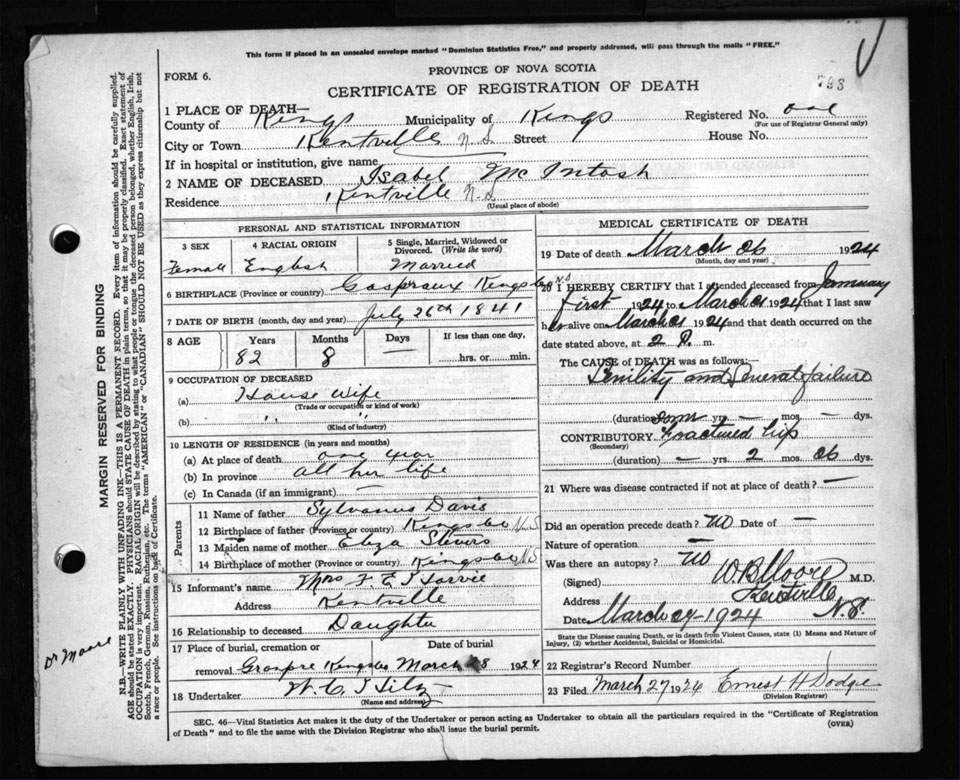 This form if placed in an unsealed envelope marked "Dominion Statistics Free," and properly addressed, will pass through the mails "FREE."
793
FORM 6.
PROVINCE OF NOVA SCOTIA
CERTIFICATE OF REGISTRATION OF DEATH
1 PLACE OF DEATH—
County of Kings Municipality of Kings Registered No. one
(For use of Registrar General only)
City or Town Kentville N.S. Street House No.
If in hospital or institution, give name
2 NAME OF DECEASED, Isabel McIntosh
Residence Kentville N.S.
(Usual place of abode)
PERSONAL AND STATISTICAL INFORMATION
3 SEX 4 RACIAL ORIGIN 5 Single, Married, Widowed or Divorced. (Write the word)
Female English Married
6 BIRTHPLACE (Province or country) Gaspraux Kings
7 DATE OF BIRTH (month, day and year) July 26th 1841
8 AGE Years Months Days If less than one day,
82 8 — hrs. or min.
9 OCCUPATION OF DECEASED
(a) House wife
(Trade or occupation or kind of work)
(b) " "
(Kind of industry)
10 LENGTH OF RESIDENCE (in years and months)
(a) At place of death one year
(b) In province all her life
(c) In Canada (if an immigrant) —
Parents
11 Name of father Sylvanus Davis
12 Birthplace of father (Province or country) Kings Co N.S
13 Maiden name of mother Eliza
14 Birthplace of mother (Province or country) Kings Co NS
15 Informant's name Mrs F E Harvie
Address Kentville
16 Relationship to deceased Daughter
17 Place of burial, cremation or Date of burial
removal Granpre Kings Co March 28 1924
18 Undertaker
(Name and address)
MEDICAL CERTIFICATE OF DEATH
19 Date of death March 26 1924
(Month, day and year)
20 I HEREBY CERTIFY that I attended deceased from January
first 1924 to March 1924 that I last saw
her alive on March 1924 and that death occurred on
date stated above, at 2 P. m.
The CAUSE of DEATH was as follows:—
Senility and General failure
(duration) yrs. — mos. — dys.
CONTRIBUTORY Fractured hip
(Secondary)
(duration) — yrs. 2 mos. 26 dys.
21 Where was disease contracted if not at place of death? —
Did an operation precede death? no Date of —
Nature of operation —
Was there an autopsy? no
(Signed) W B Moore M.D.
Address Kentville N.S.
Date, March 27 1924
State the Disease causing Death, or in death from Violent Causes, state (1) Means and Nature of Injury, (2) whether Accidental, Suicidal or Homicidal.
22 Registrar's Record Number
23 Filed March 27 1924 Ernest H Dodge
(Division Registrar)
SEC. 46—Vital Statistics Act makes it the duty of the Undertaker or person acting as Undertaker to obtain all the particulars required in the "Certificate of Registration
of Death" and to file the same with the Division Registrar who shall issue the burial permit.
(OVER)
MARGIN RESERVED FOR BINDING
N.B.—WRITE PLAINLY WITH UNFADING INK—THIS IS A PERMANENT RECORD. Every item of information should be carefully supplied.
AGE should be stated EXACTLY. PHYSICIANS should STATE CAUSE OF DEATH in plain terms, so that it may be properly classified. Exact statement of
OCCUPATION is very important. RACIAL ORIGIN will be described by stating to what people or tongue the deceased person belonged, whether English, Irish,
Scotch, French, German, Russian, Ruthenian, etc. The terms "AMERICAN" or "CANADIAN" SHOULD NOT BE USED as they express citizenship but not
a race or people. See instructions on back of Certificate.
Dr Moore